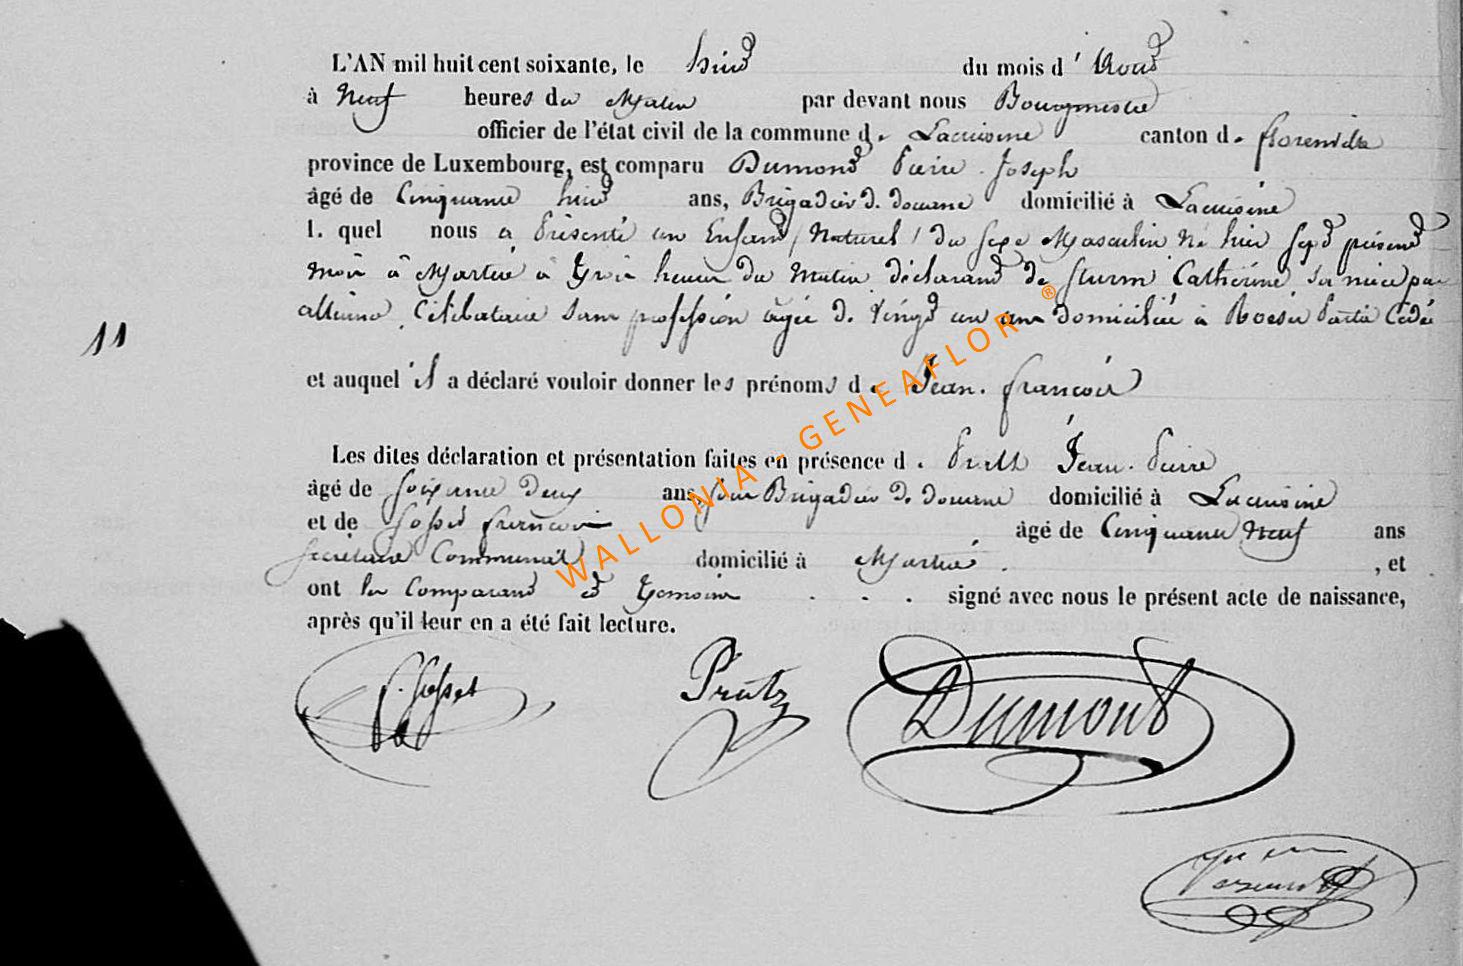 L'AN mil huit cent soixante, le huit du mois d'Aout
à Neuf heures du Matin par devant nous Bourgmestre
officier de l'état civil de la commune de Lacuisine canton de florenville
province de Luxembourg, est comparu Dumont Pierre Joseph
âgé de Cinquante huit ans, Brigadier de douane domicilié à Lacuisine
lequel nous a Présenté un Enfant (Naturel) du sexe Masculin Né hier sept présent
mois à Martué à trois heures du Matin déclarant de Sturm Catherine sa niece par
alliance Célibataire Sans profession agée de Vingt un ans domiciliée à Partie Cédée
11
et auquel il a déclaré vouloir donner les prénoms de Jean françois
Les dites déclaration et présentation faites en présence de Jean Pierre
âgé de Soixante deux ans, Brigadier de douane domicilié à Lacuisine
et de Gosset françois âgé de Cinquante Neuf ans
Secrétaire Communal domicilié à Martué , et
ont les Comparant et Temoins signé avec nous le présent acte de naissance,
après qu'il leur en a été fait lecture.
f. Gosset Prutz Dumont
WALLONIA - GENEAFLOR ®